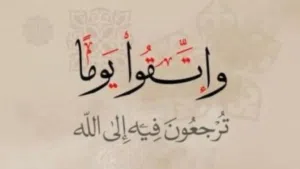 وإتَّقُوا يَومًا
تُرجعُونَ فِيهِ إلىَ اللَّه